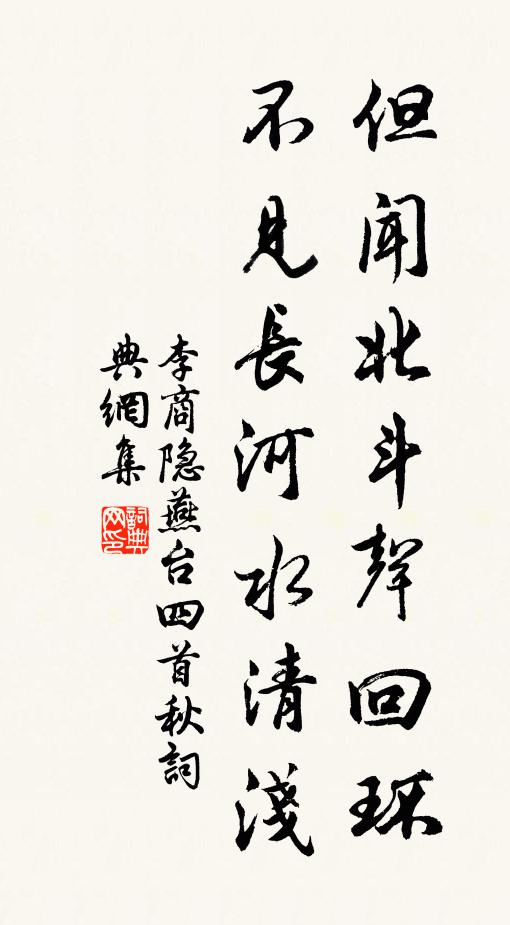 但聞北斗聲回环
不見長河水清淺
李商隐燕台四首秋詞
典網集
詞典
网印